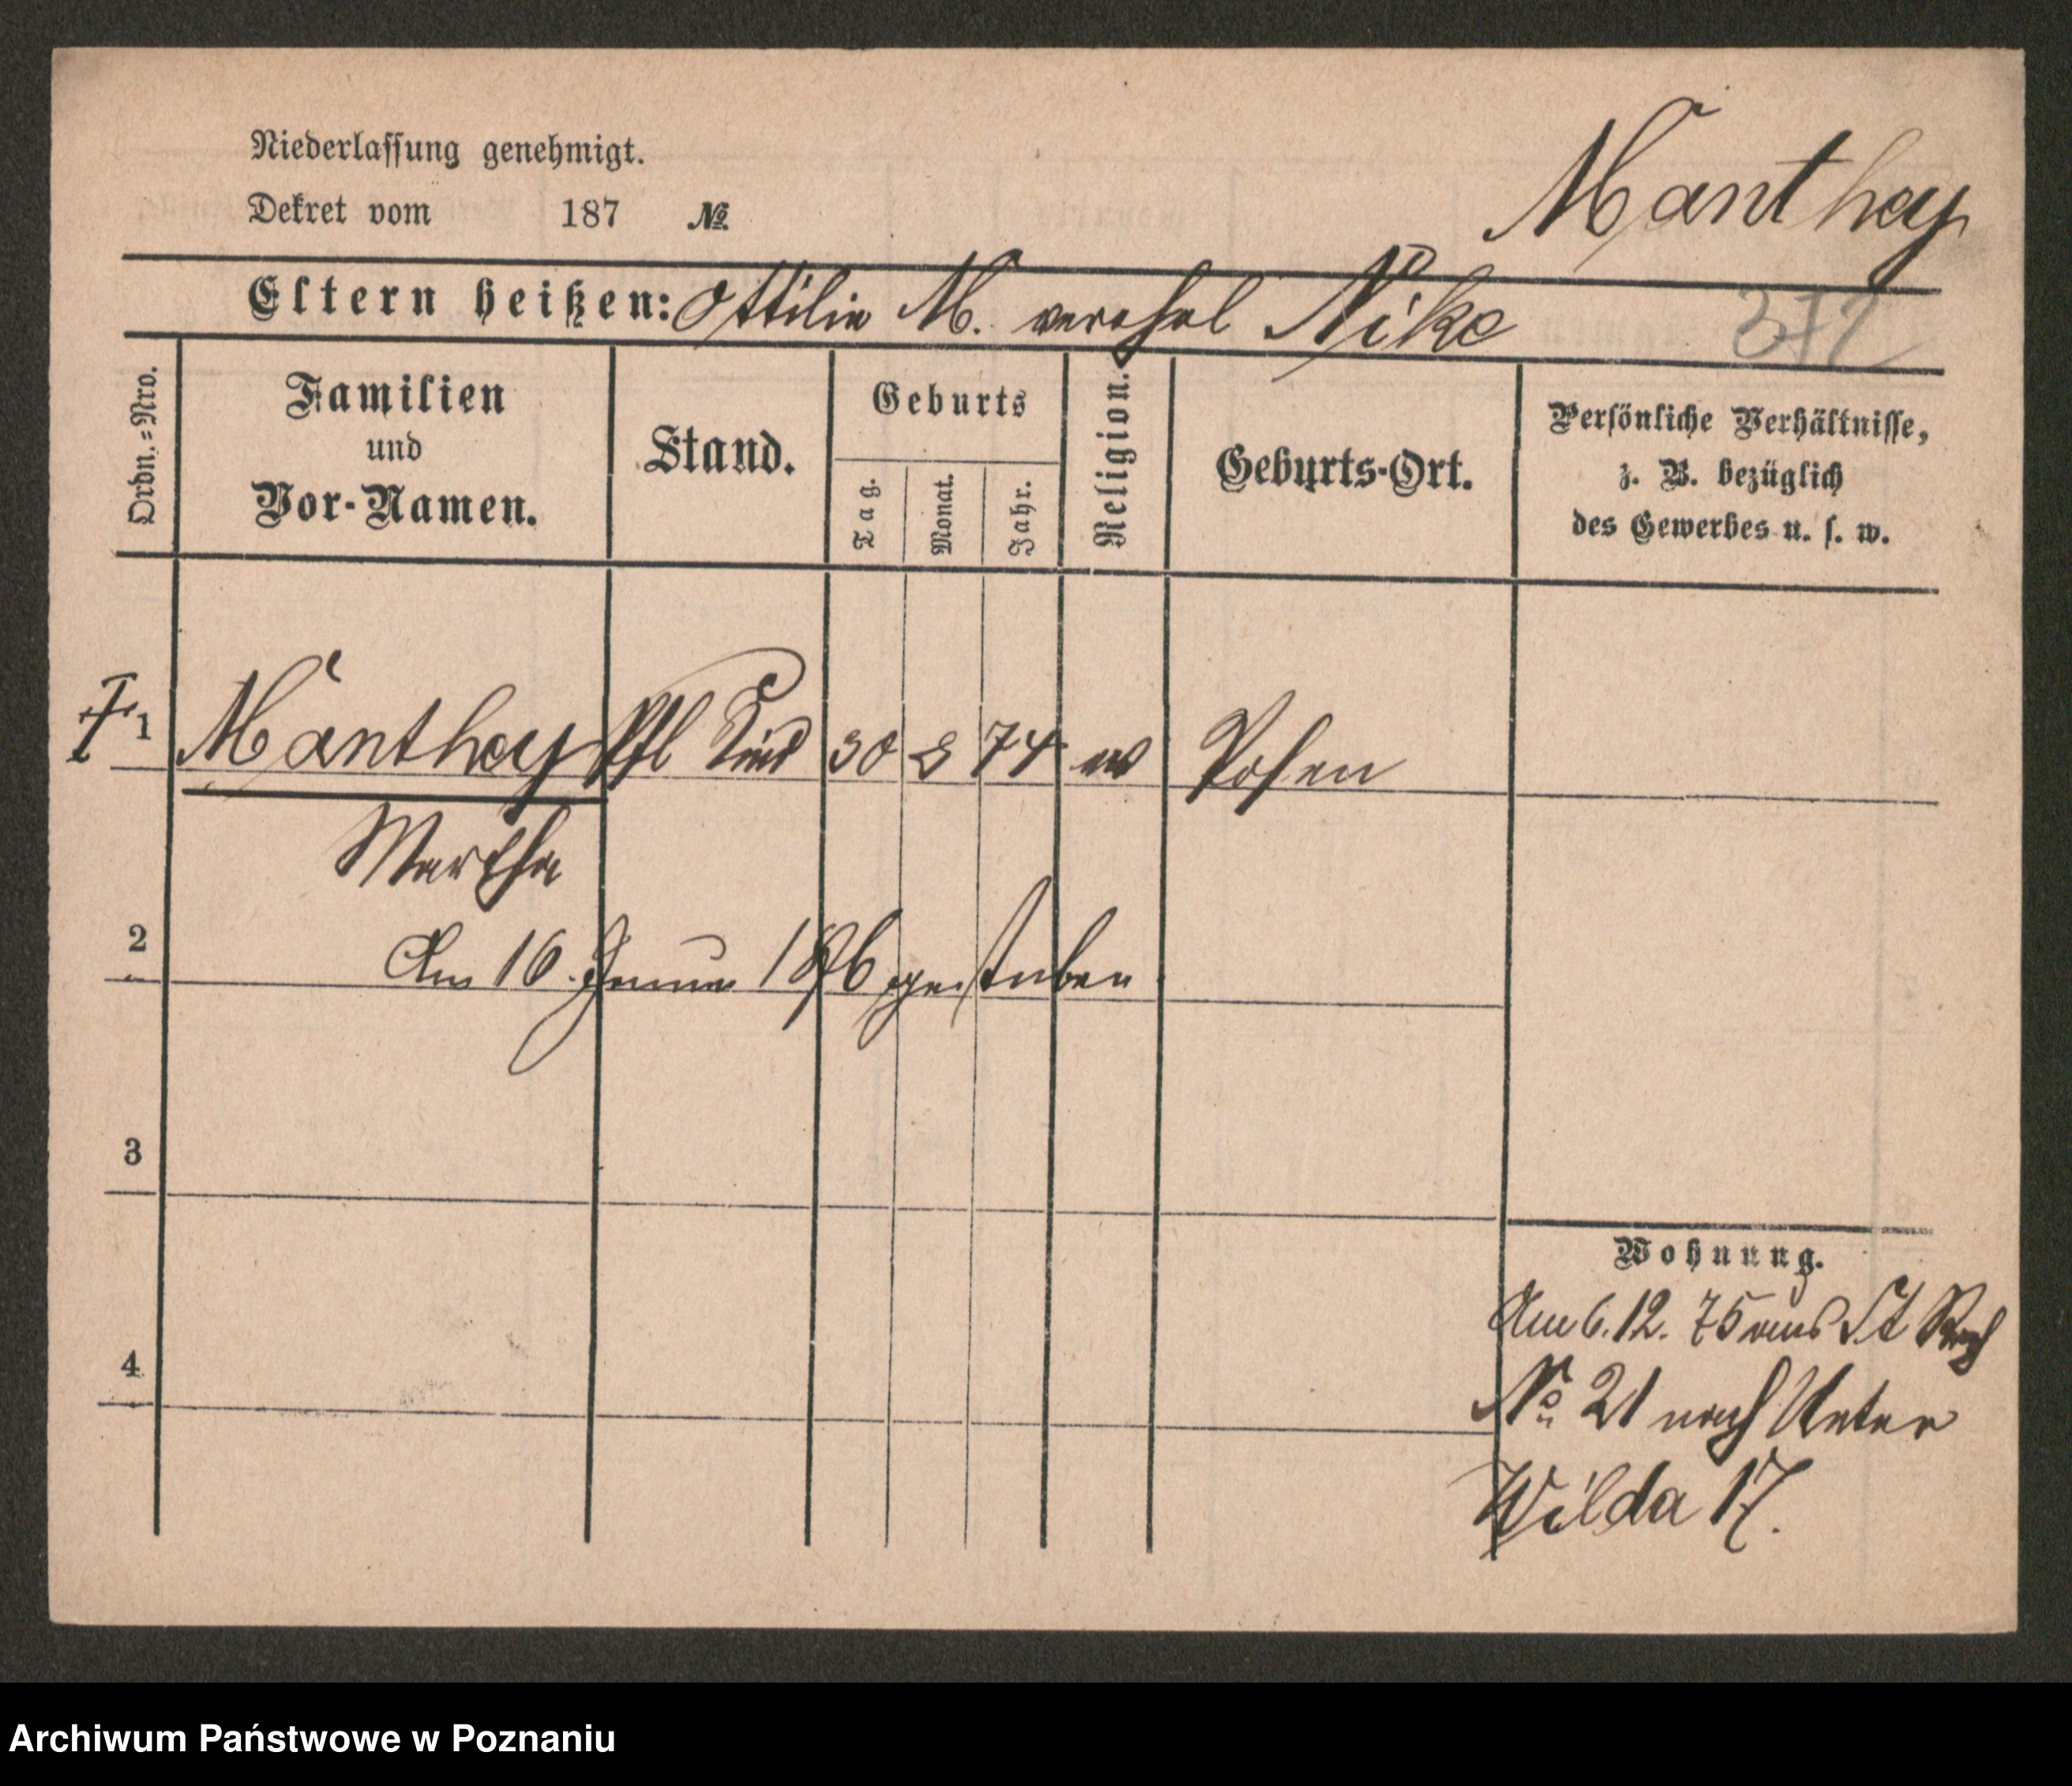 Niederlassung genehmigt.
Dekret vom 187 №
Manthey
Eltern heißen: Ottilie M. verehel Nike
372
Ordn.=Nro.
Familien
und
Vor-Namen.
Stand.
Geburts
Tag.
Monat.
Jahr.
Religion.
Geburts-Ort.
Persönliche Verhältnisse,
z. B. bezüglich
des Gewerbes u. s. w.
1 Manthey Pfl Kind 30 8 74 ev Posen
Martha
2
Am 16. Januar 1876 gestorben
3
4
Wohnung.
Am 6. 12. 75 aus St
No 21 nach Unter
Wilda 17.
Archiwum Państwowe w Poznaniu